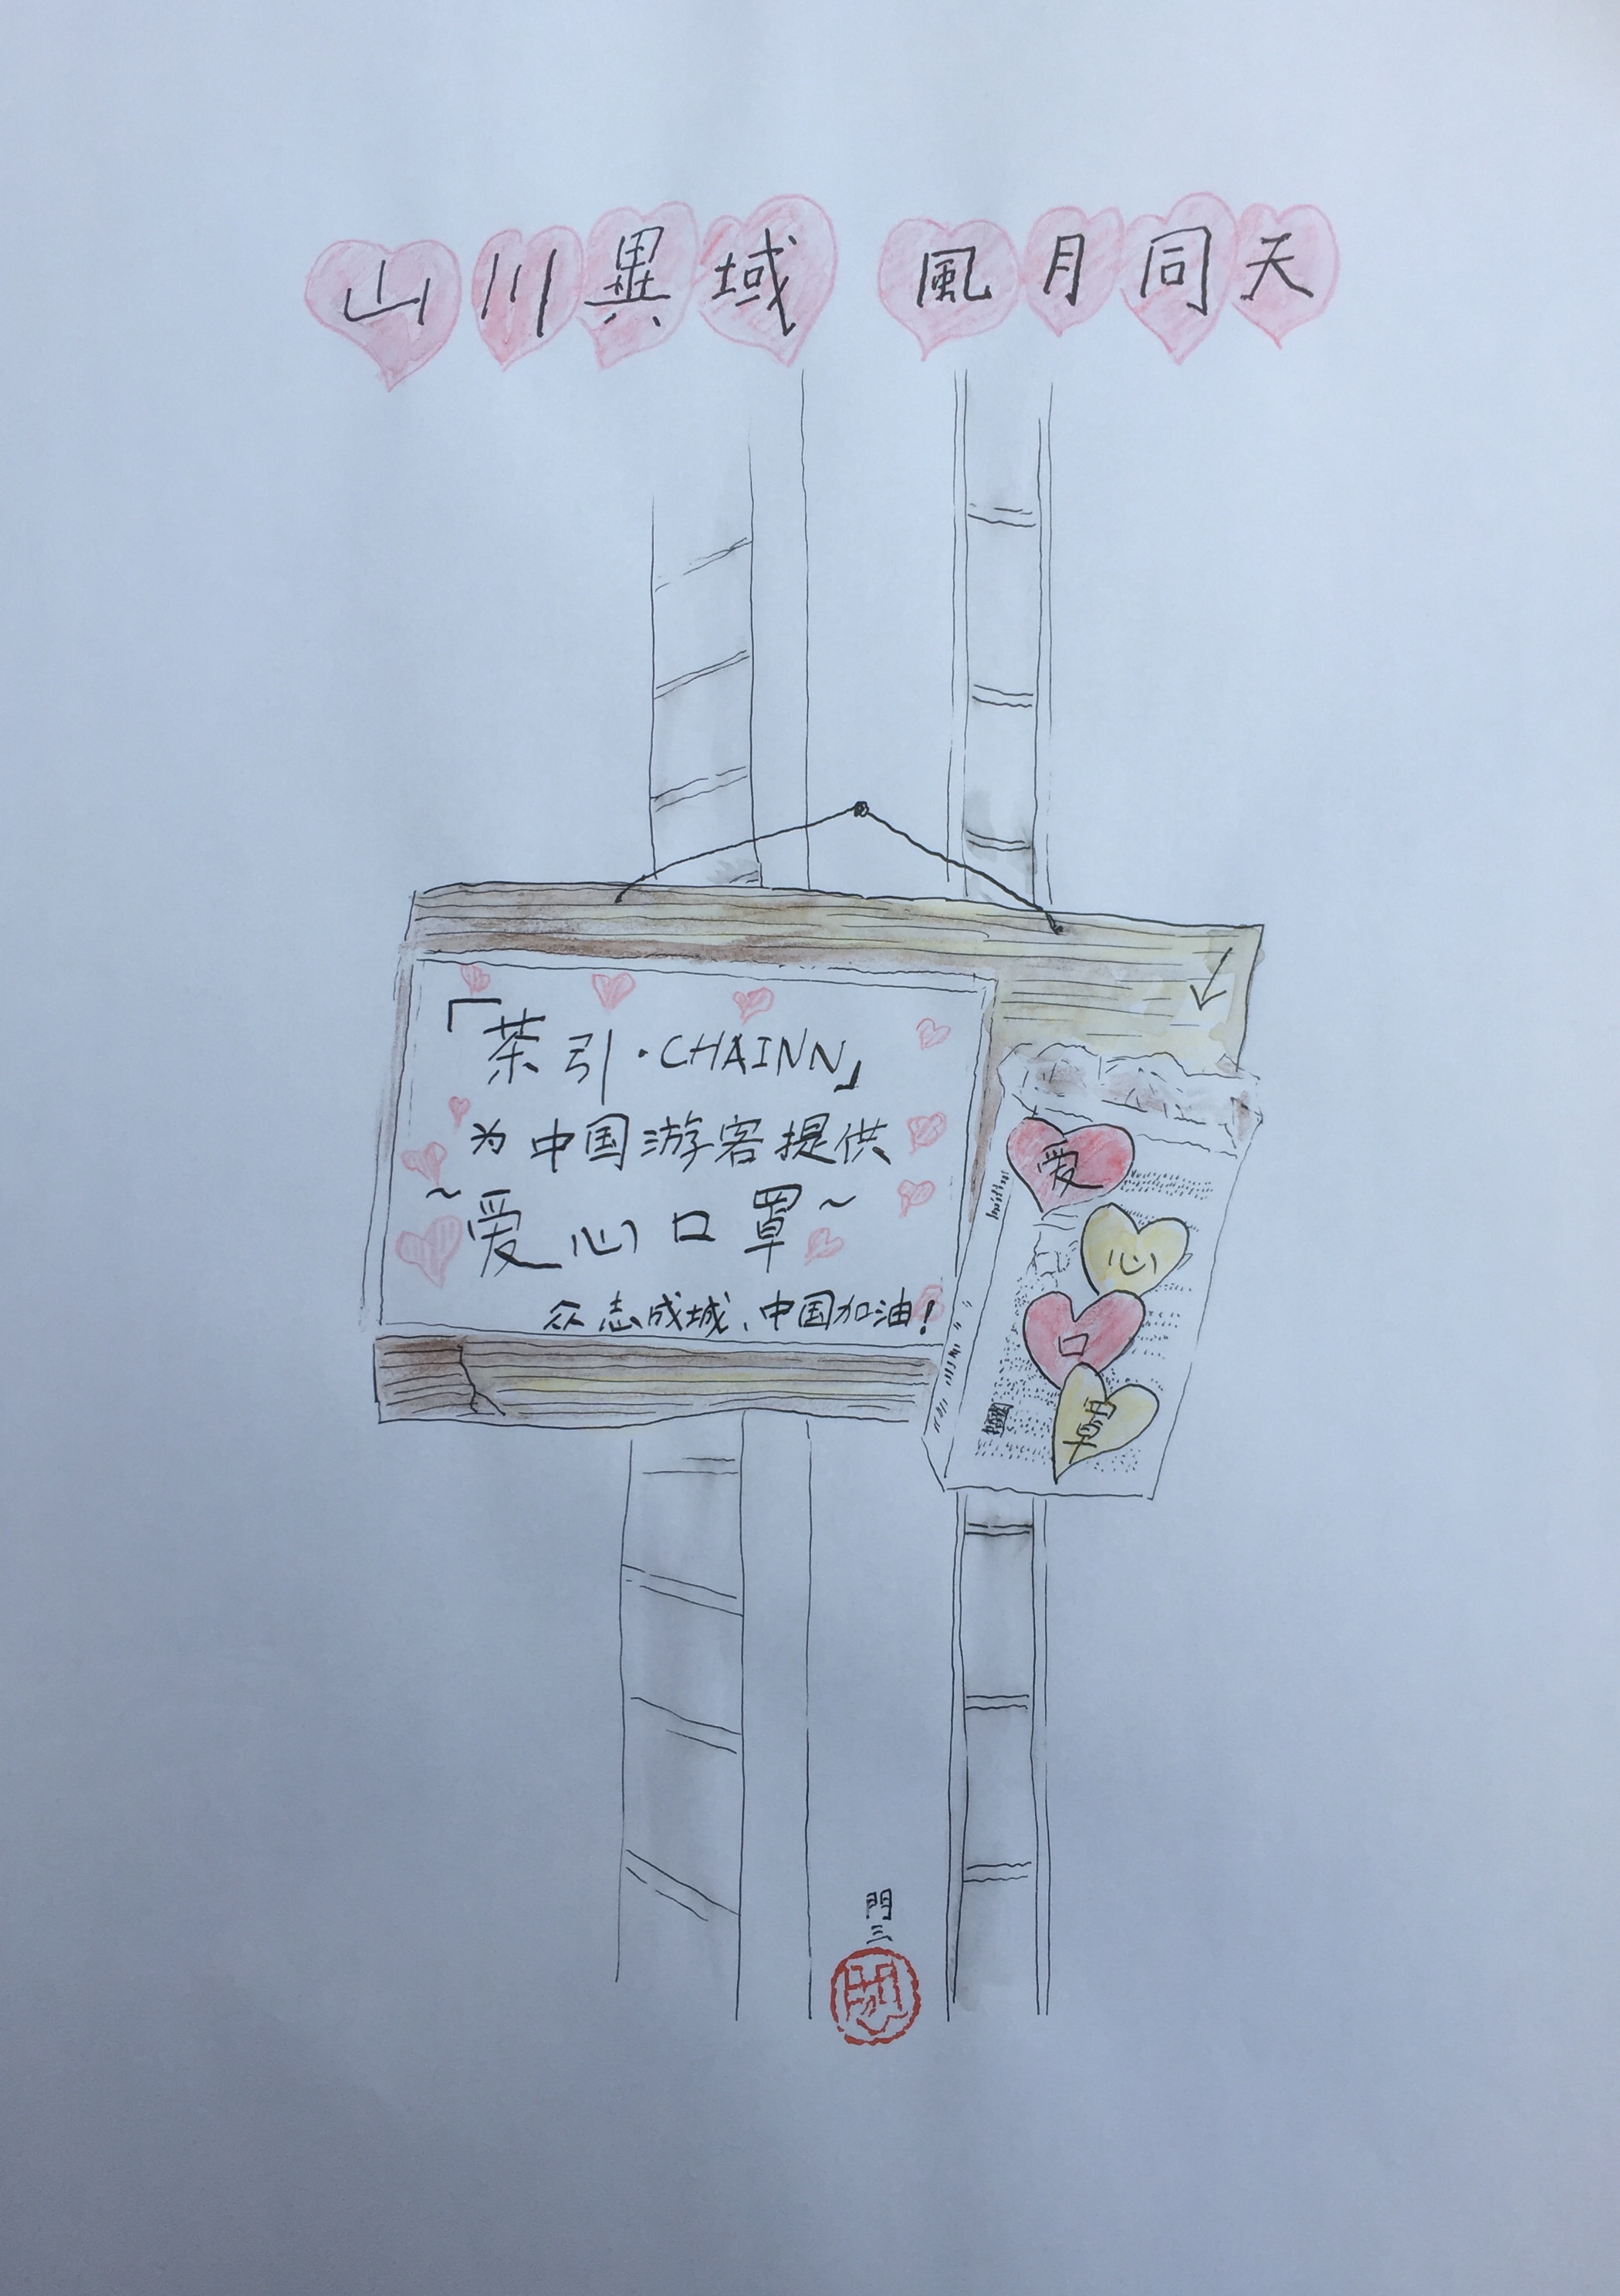 山川異域 風月同天
「茶引·CHAINN」
为中国游客提供
~爱心口罩~
众志成城、中国加油!
爱
心
口
罩
門
三